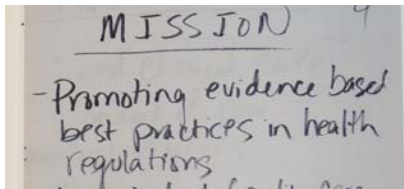 MISSION
- Promoting evidence based
best practices in health
regulations